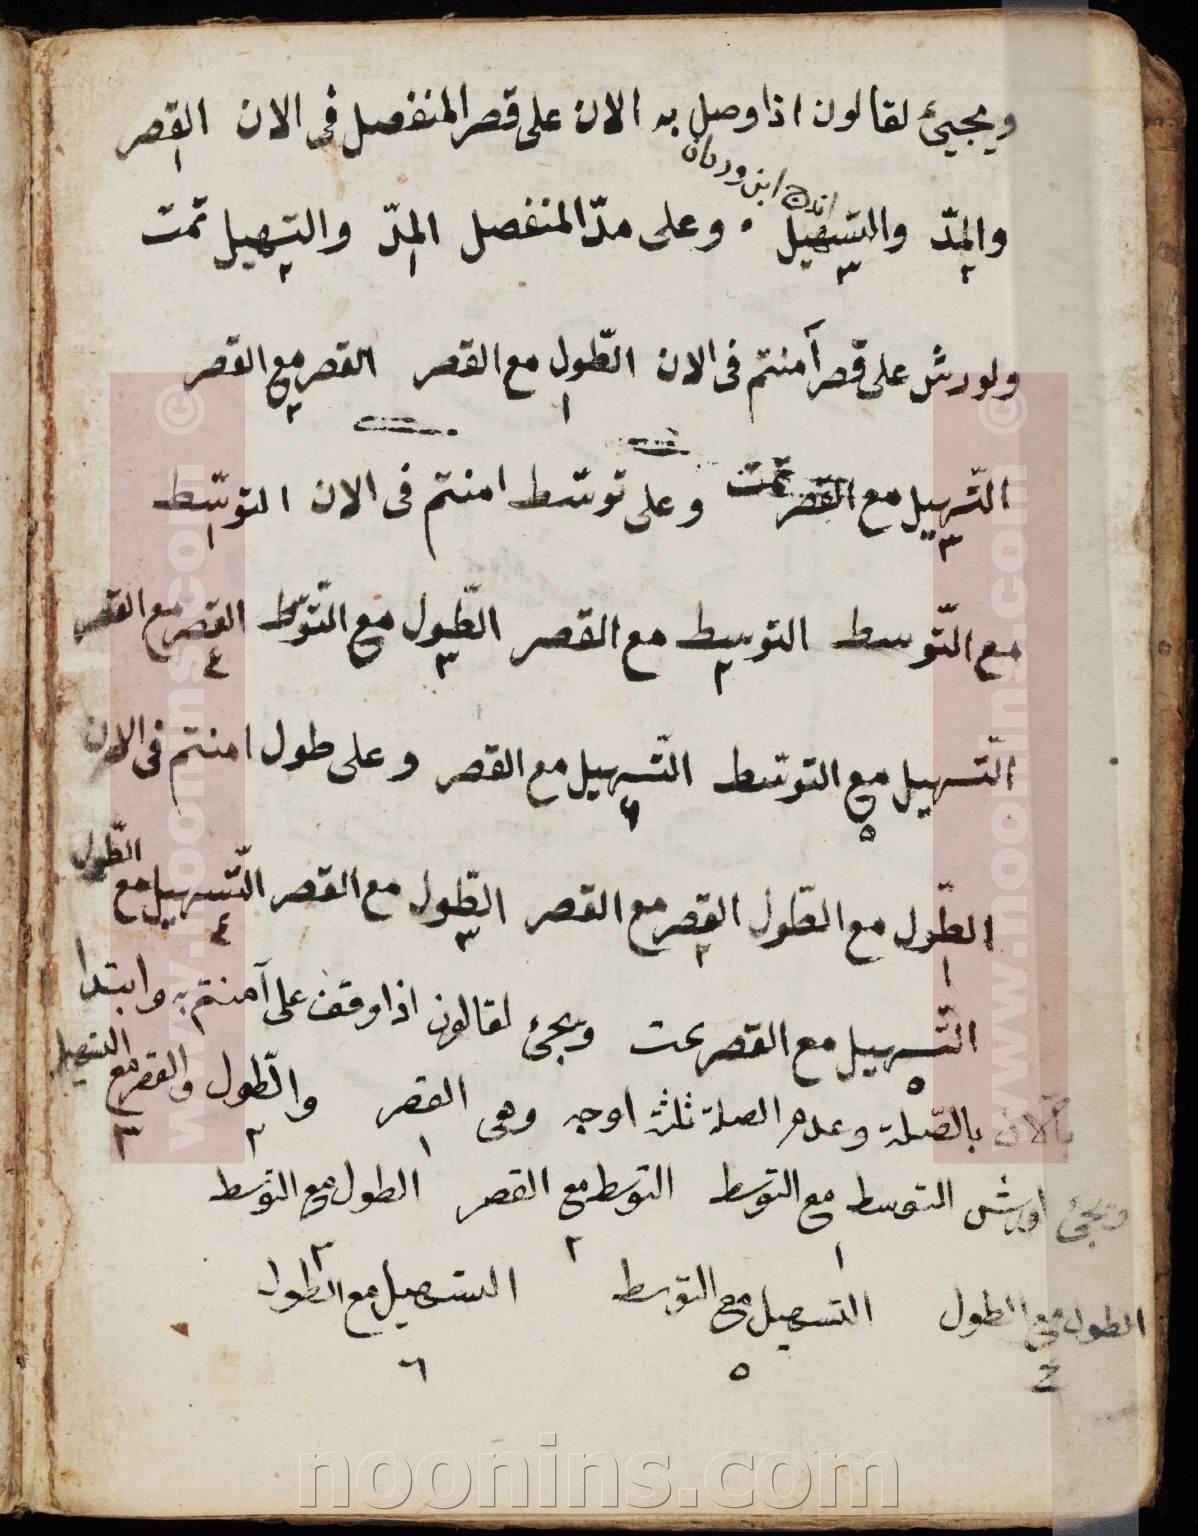 ويجيئ لقالون اذا وصل به الان على قصر المنفصل فى الان القصر
١
اندرج ابن وردان
والمدّ والتسهيل وعلى مدّ المنفصل المدّ والتسهيل تمت
٢ ٣ ١ ٢
ولورش على قصر آمنتم فى الان الطّول مع القصر القصر مع القصر
١ ٢
التّسهيل مع القصر تمّت وعلى توسّط امنتم فى الان التوسّط
٣ ١
مع التّوسط التوسط مع القصر الطّول مع التّوسّط القصر مع القصر
٢ ٣ ٤
التّسهيل مع التوسّط التّسهيل مع القصر وعلى طول امنتم فى الان
٥ ٦
الطّول مع الطّول القصر مع القصر الطّول مع القصر التّسهيل مع الطّول
١ ٢ ٣ ٤
التّسهيل مع القصر تمت ويجئ لقالون اذا وقف على آمنتم به وابتدا
٥
بآلان بالصّلة وعدم الصلة ثلثة اوجه وهى القصر والطّول والقصر مع التسهيل
١ ٢ ٣
ويجئ لورش التوسط مع التوسط التوسط مع القصر الطول مع التوسط
١ ٢ ٣
الطول مع الطول التسهيل مع التوسط التسهيل مع الطول
٤ ٥ ٦
www.noonins.com ©
www.noonins.com ©
noonins.com